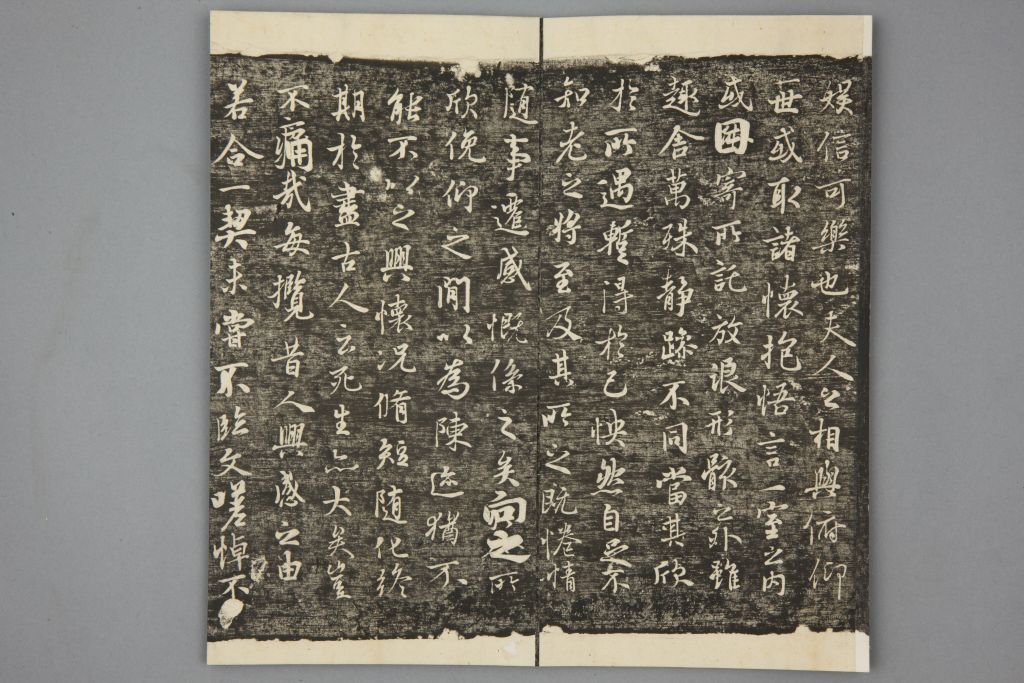 娛信可樂也夫人之相與俯仰
一世或取諸懷抱悟言一室之內
或因寄所託放浪形骸之外雖
趣舍萬殊静躁不同當其欣
於所遇暫得於己怏然自足不
知老之將至及其所之既惓情
随事遷感慨係之矣向之所
欣俛仰之閒以為陳迹猶不
能不以之興懷況脩短随化終
期於盡古人云死生亦大矣豈
不痛哉每攬昔人興感之由
若合一契未嘗不臨文嗟悼不